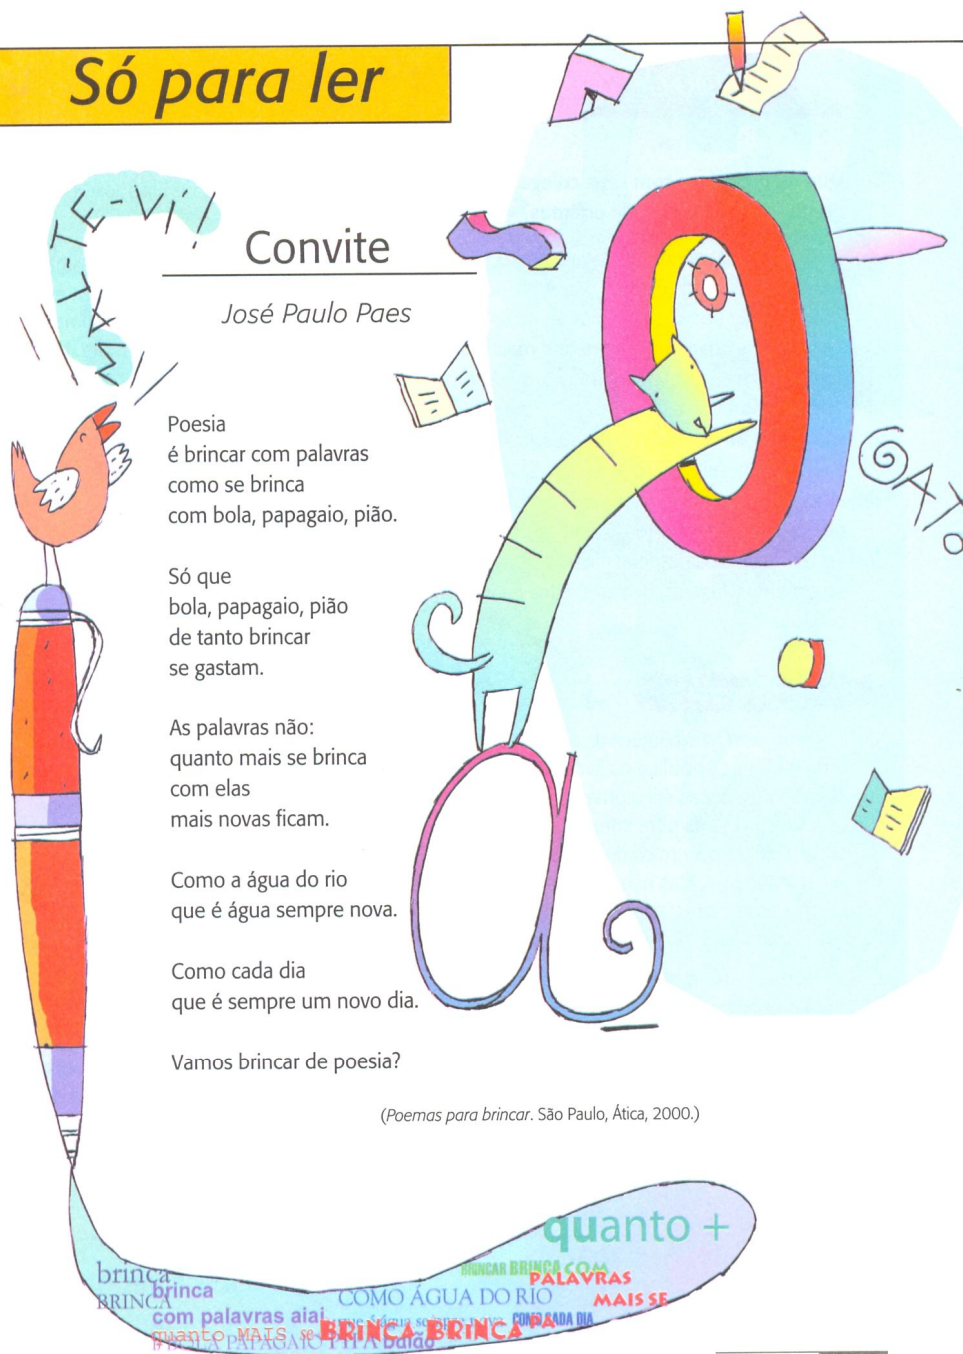 Só para ler
MAL-TE-VI!
Convite
José Paulo Paes
Poesia
é brincar com palavras
como se brinca
com bola, papagaio, pião.
Só que
bola, papagaio, pião
de tanto brincar
se gastam.
As palavras não:
quanto mais se brinca
com elas
mais novas ficam.
Como a água do rio
que é água sempre nova.
Como cada dia
que é sempre um novo dia.
Vamos brincar de poesia?
(Poemas para brincar. São Paulo, Ática, 2000.)
GATO
a
quanto +
BRINCAR BRINCA COM
PALAVRAS
MAIS SE
brinca
BRINCA
brinca
COMO ÁGUA DO RIO
com palavras aiai
que é água sempre nova
COMO CADA DIA
quanto MAIS se
BRINCA BRINCA PA
BOLA PAPAGAIO
balão